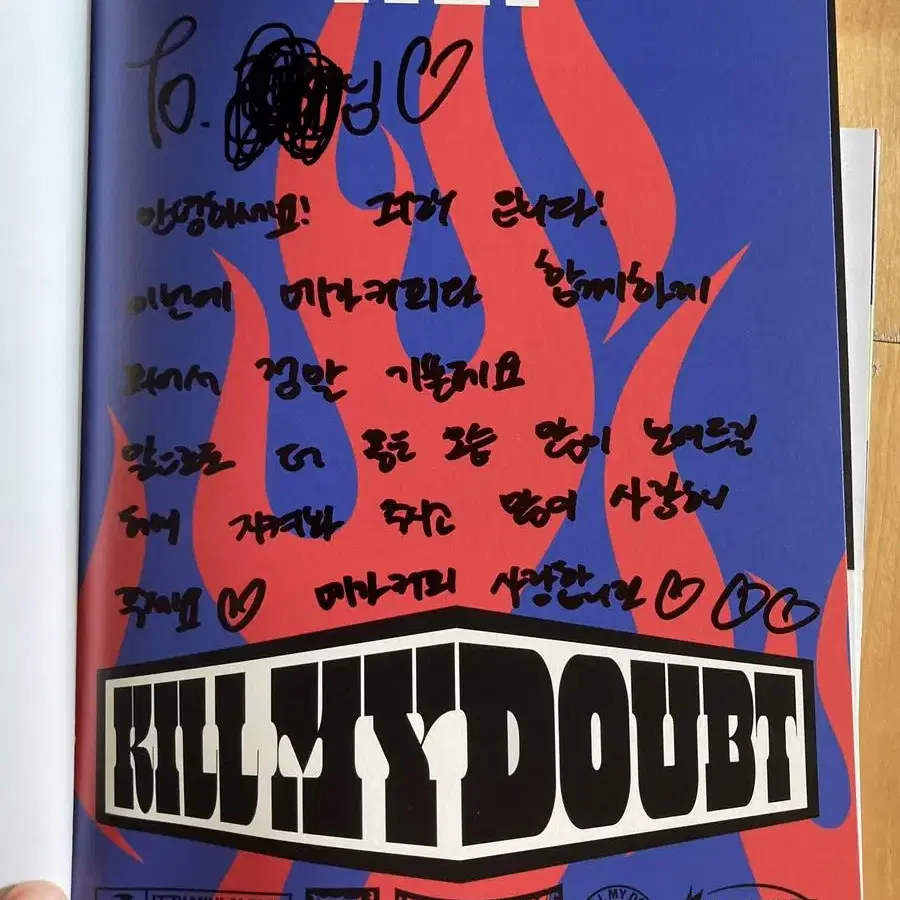 To. 님♡
안녕하세요! 리아 입니다!
이번에 메가커피랑 함께하게
되어서 정말 기쁜데요
앞으로도 더 좋은 모습 많이 보여드릴
테니 지켜봐 주시고 많이 사랑해
주세요♡ 메가커피 사랑합니다♡♡♡
KILL MY DOUBT